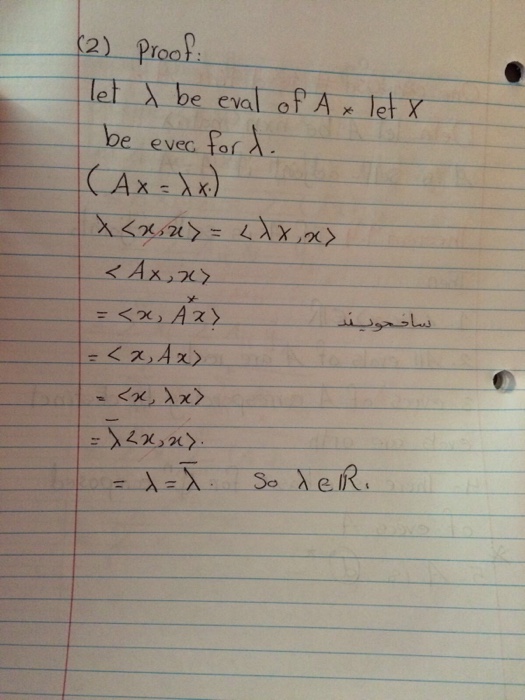 (2) Proof:
let λ be eval of A * let X
be evec for λ.
(Ax = λx.)
λ<x,x> = <λx,x>
<Ax,x>
= <x, A*x>
= <x, Ax>
= <x, λx>
= λ̄<x,x>.
= λ = λ̄. So λ ∈ ℝ.